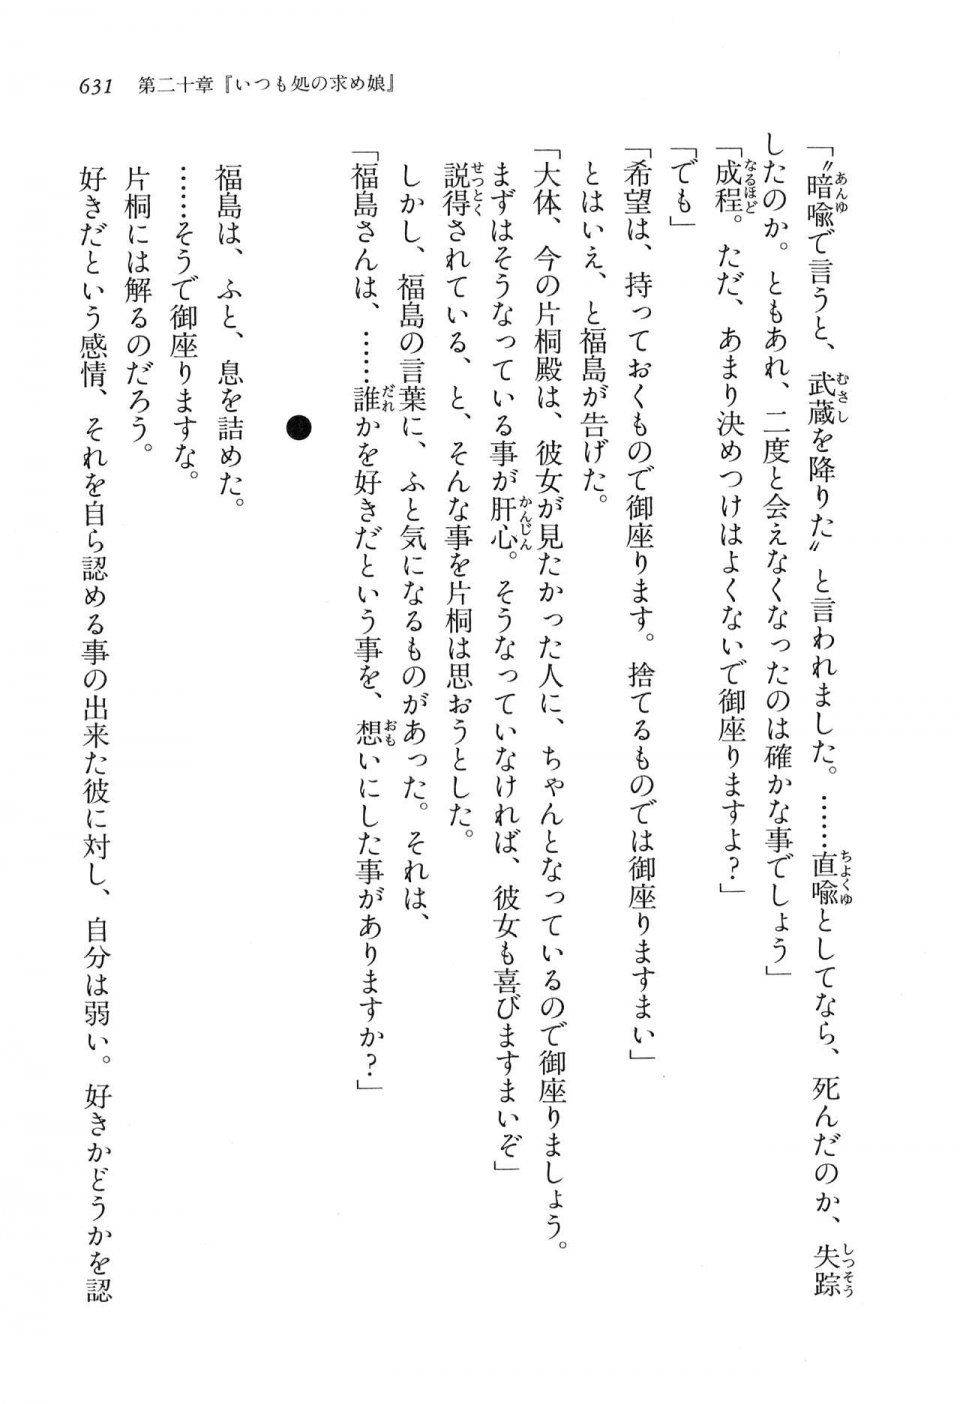 631　第二十章『いつも処の求め娘』
「〝暗喩で言うと、武蔵を降りた〟と言われました。……直喩としてなら、死んだのか、失踪
したのか。ともあれ、二度と会えなくなったのは確かな事でしょう」
「成程。ただ、あまり決めつけはよくないで御座りますよ？」
「でも」
「希望は、持っておくもので御座ります。捨てるものでは御座りますまい」
とはいえ、と福島が告げた。
「大体、今の片桐殿は、彼女が見たかった人に、ちゃんとなっているので御座りましょう。
まずはそうなっている事が肝心。そうなっていなければ、彼女も喜びますまいぞ」
説得されている、と、そんな事を片桐は思おうとした。
しかし、福島の言葉に、ふと気になるものがあった。それは、
「福島さんは、……誰かを好きだという事を、想いにした事がありますか？」
●
福島は、ふと、息を詰めた。
……そうで御座りますな。
片桐には解るのだろう。
好きだという感情、それを自ら認める事の出来た彼に対し、自分は弱い。好きかどうかを認